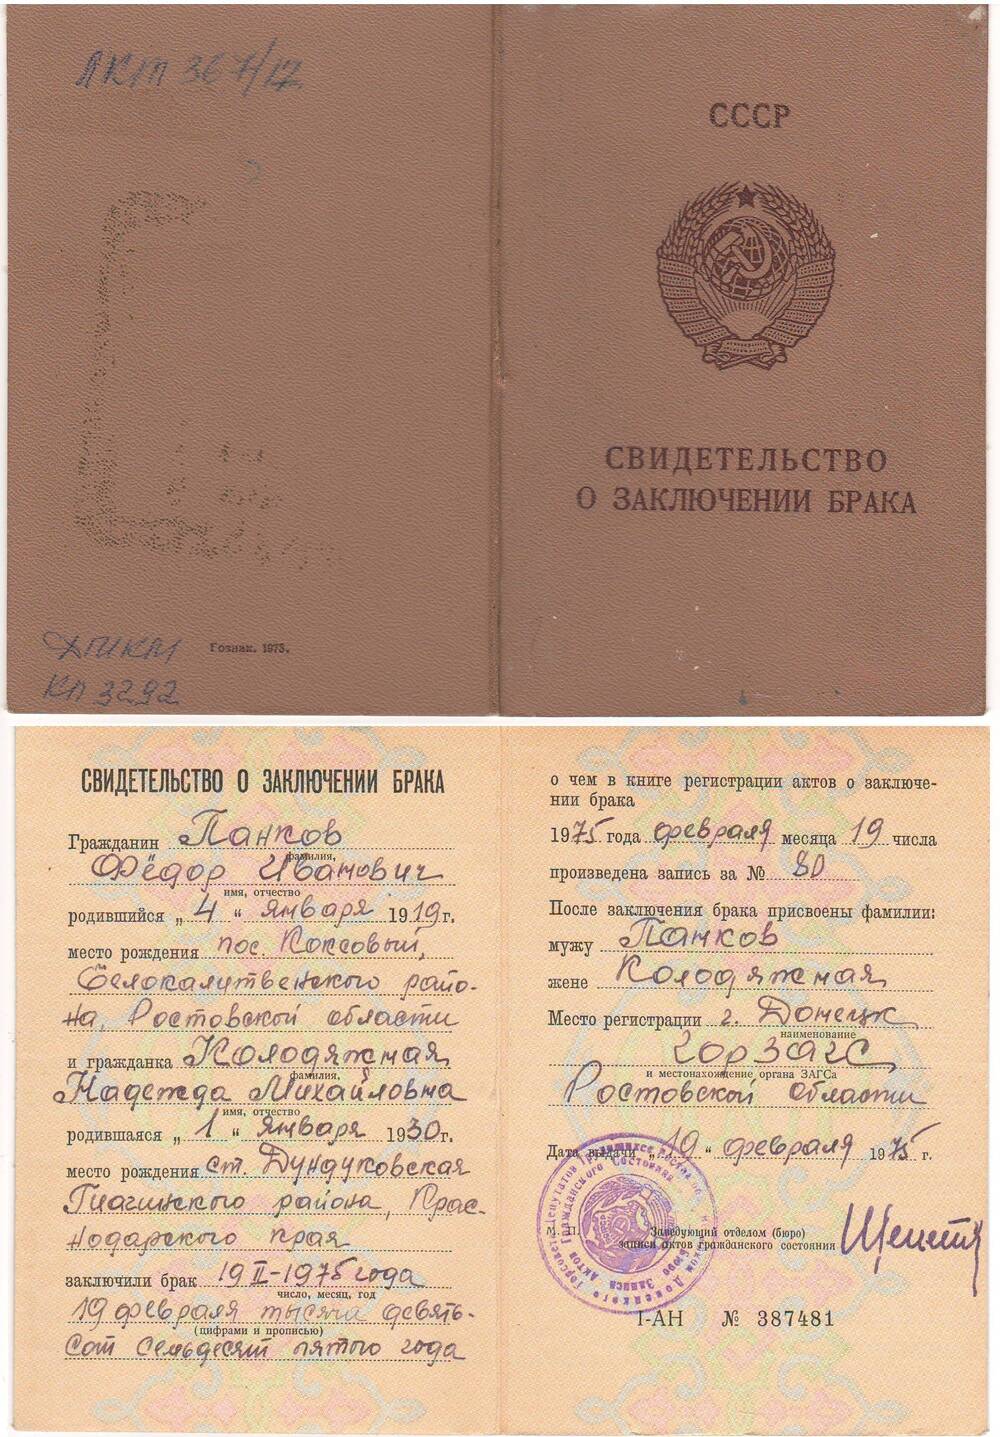 АКТ 367/12
СССР
СВИДЕТЕЛЬСТВО
О ЗАКЛЮЧЕНИИ БРАКА
Гознак. 1973.
КП 3292
СВИДЕТЕЛЬСТВО О ЗАКЛЮЧЕНИИ БРАКА
Гражданин Панков
фамилия,
Фёдор Иванович
имя, отчество
родившийся „ 4 “ января 1919г.
место рождения пос. Коксовый,
Белокалитвенского райо-
на, Ростовской области
и гражданка Колодяжная
фамилия,
Надежда Михайловна
имя, отчество
родившаяся „ 1 “ января 1930г.
место рождения ст. Дундуковская
Гиагинского района, Крас-
нодарского края
заключили брак 19 II-1975 года
число, месяц, год
19 февраля тысяча девять-
(цифрами и прописью)
сот семьдесят пятого года
о чем в книге регистрации актов о заключе-
нии брака
1975 года февраля месяца 19 числа
произведена запись за № 80
После заключения брака присвоены фамилии:
мужу Панков
жене Колодяжная
Место регистрации г. Донецк
наименование
горЗАГС
и местонахождение органа ЗАГСа
Ростовской области
Дата выдачи „ 19 “ февраля 1975 г.
М. П.
Заведующий отделом (бюро)
записи актов гражданского состояния
I-АН № 387481